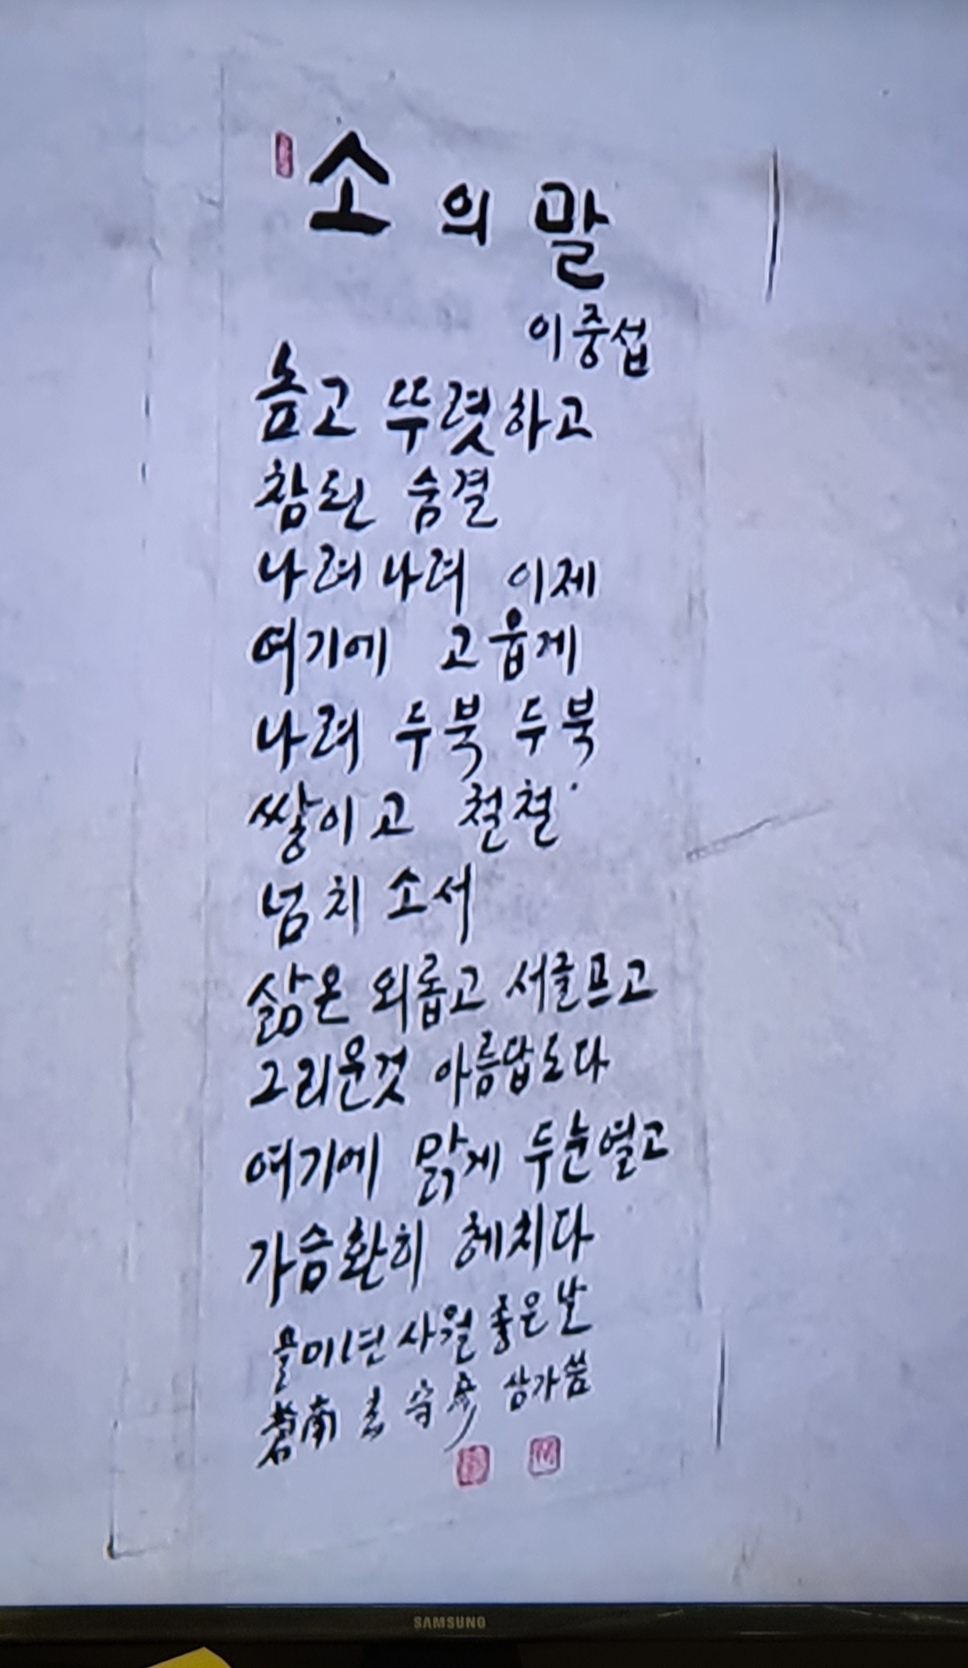 소의 말
이중섭
높고 뚜렷하고
참된 숨결
나려나려 이제
여기에 고웁게
나려 두북 두북
쌓이고 철철
넘치소서
삶은 외롭고 서글프고
그리운것 아름답도다
여기에 맑게 두눈열고
가슴환히 헤치다
을미년 사월 좋은날
南
SAMSUNG